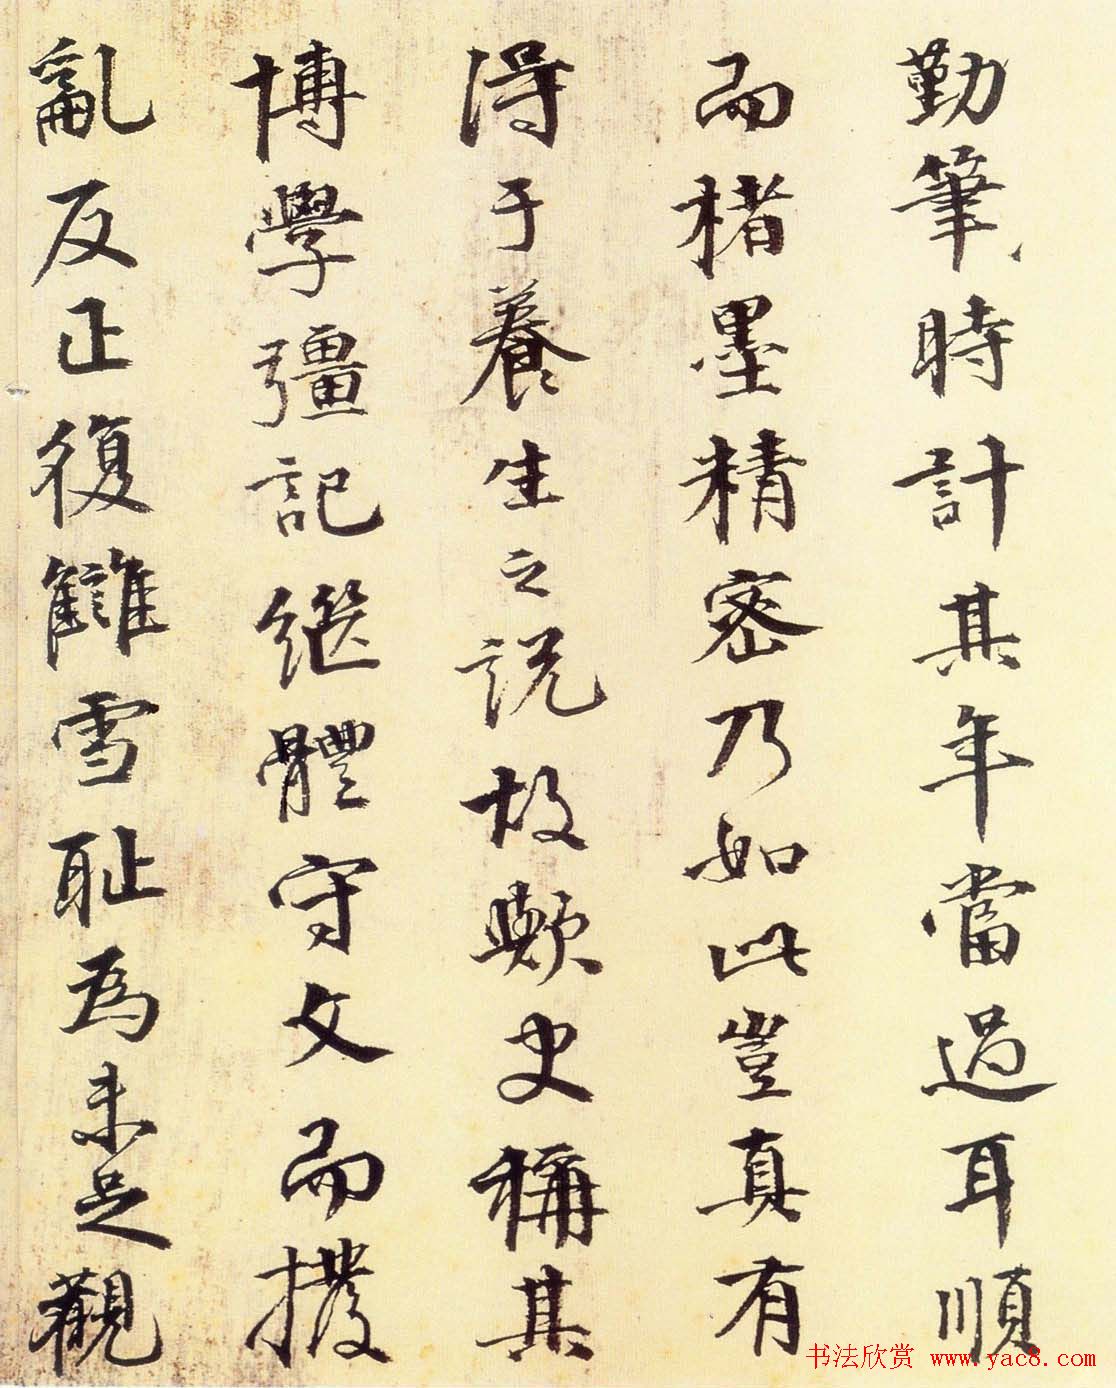 勤筆時計其年當過耳順
而楮墨精密乃如此豈真有
得于養生之說故歟史稱其
博學彊記繼體守文而撥
亂反正復讎雪恥為未足觀
书法欣赏 www.yac8.com